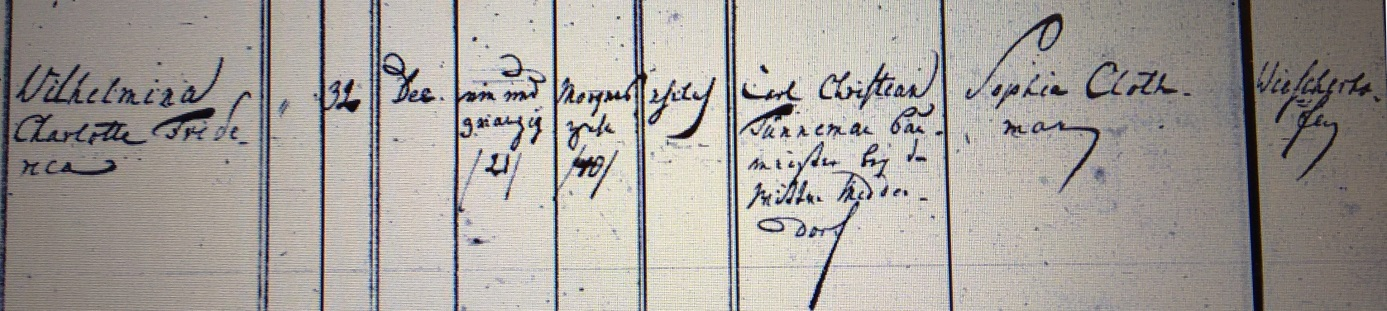 Wilhelmina
Charlotte Fride-
rica
"
32
Dec.
ein und
zwanzig
/21/
Morgens
/10/
ehelich
Carl Christian
Tünneman Bau-
meister bey der
Wittwe Midden-
dorf
Sophia Cloth-
man
Wiescherhö-
fen